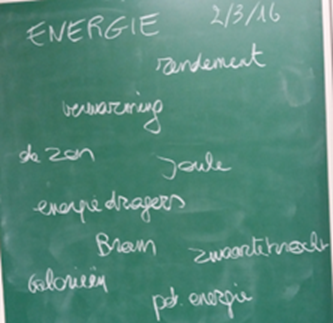 ENERGIE 2/3/16
rendement
verwarming
de zon
Joule
energiedragers
Bram
zwaartekracht
Calorieën
pot. energie